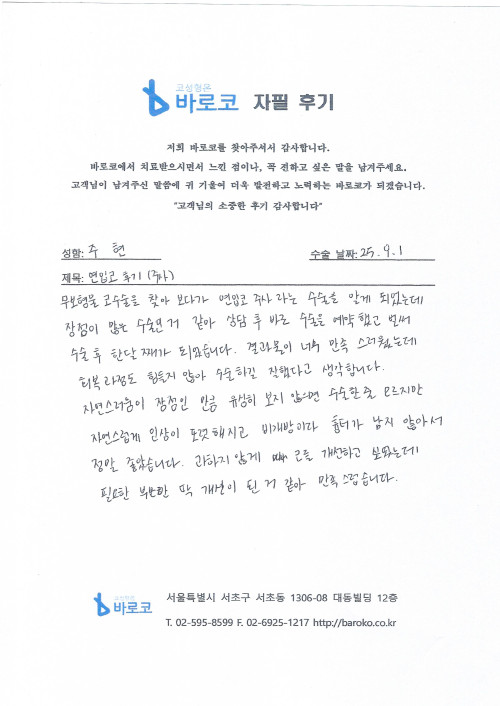 코성형은
바로코 자필 후기
저희 바로코를 찾아주셔서 감사합니다.
바로코에서 치료받으시면서 느낀 점이나, 꼭 전하고 싶은 말을 남겨주세요.
고객님이 남겨주신 말씀에 귀 기울여 더욱 발전하고 노력하는 바로코가 되겠습니다.
"고객님의 소중한 후기 감사합니다"
성함: 주 현 수술 날짜: 25. 9. 1
제목: 면입코 후기 (주사)
무보형물 코수술을 찾아 보다가 면입코 주사 라는 수술을 알게 되었는데
장점이 많은 수술인 거 같아 상담 후 바로 수술을 예약 했고 벌써
수술 후 한달 째가 되었습니다. 결과물이 너무 만족 스러웠는데
회복 과정도 힘들지 않아 수술하길 잘했다고 생각합니다.
자연스러움이 장점인 만큼 유심히 보지 않으면 수술한 줄 모르지만
자연스럽게 인상이 또렷 해지고 비개방이라 흉터가 남지 않아서
정말 좋았습니다. 과하지 않게 코를 개선하고 싶었는데
필요한 부분만 딱 개선이 된 거 같아 만족 스럽습니다.
코성형은
바로코
서울특별시 서초구 서초동 1306-08 대동빌딩 12층
T. 02-595-8599 F. 02-6925-1217 http://baroko.co.kr